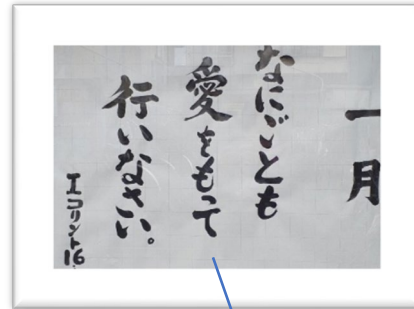 一月
なにごとも
愛をもって
行いなさい。
Iコリント16